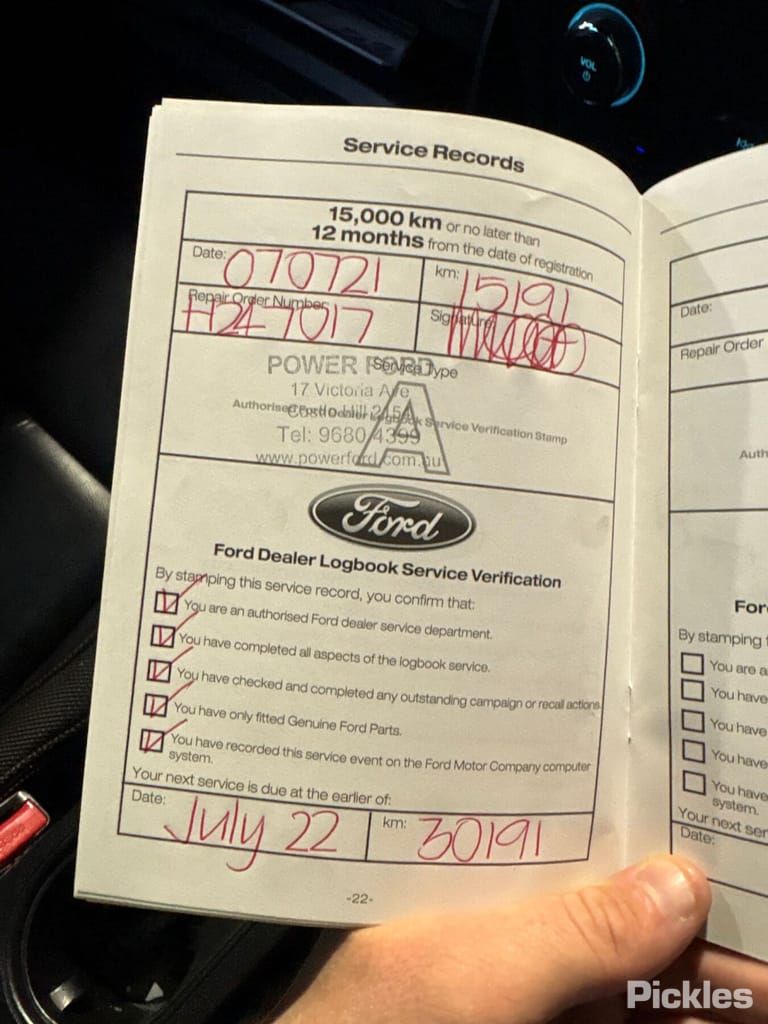 VOL
Service Records
15,000 km or no later than
12 months from the date of registration
Date: 070721
km: 15191
Repair Order Number
H24-7017
Signature
Service Type
A
POWER FORD
17 Victoria Ave
Authorised Ford Dealer Logbook Service Verification Stamp
Castle Hill 2154
Tel: 9680 4399
www.powerford.com.au
Ford
Ford Dealer Logbook Service Verification
By stamping this service record, you confirm that:
You are an authorised Ford dealer service department.
You have completed all aspects of the logbook service.
You have checked and completed any outstanding campaign or recall actions.
You have only fitted Genuine Ford Parts.
You have recorded this service event on the Ford Motor Company computer
system.
Your next service is due at the earlier of:
Date: July 22
km: 30191
-22-
Date:
Repair Order
Auth
For
By stamping
You are a
You have
You have
You have
You have
system.
Your next ser
Date:
Pickles